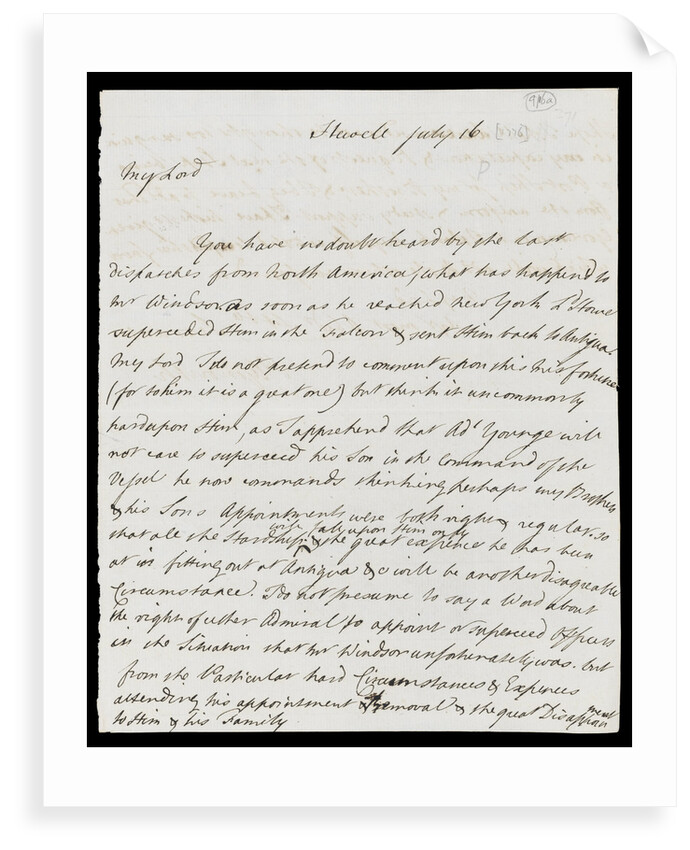 916a
Hewell July 16 [1776]
My Lord
You have no doubt heard by the last
dispatches from North America, what has happend to
Mr Windsor, as soon as he reached New York Ld Howe
superceded Him in the Falcon & sent Him back to Antigua.
My Lord I do not pretend to comment upon this Misfortune
(for to him it is a great one) but think it uncommonly
hard upon Him, as I apprehend that Adl Younge will
not care to superceed his Son in the Command of the
Vessel he now commands thinking perhaps my Brothers
& his Sons Appointments were both right & regular. so
will fall upon Him only
that all the Hardship & the great expence he has been
at in fitting out at Antigua &c will be another disagreable
Circumstance. I do not presume to say a Word about
the right of either Admiral to appoint or superceed Officers
in the Situation that Mr Windsor unfortunately was. but
from the Particular hard Circumstances & Expences
attending his appointment & Removal & the great Disappointment
to Him & his Family